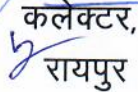 कलेक्टर,
रायपुर